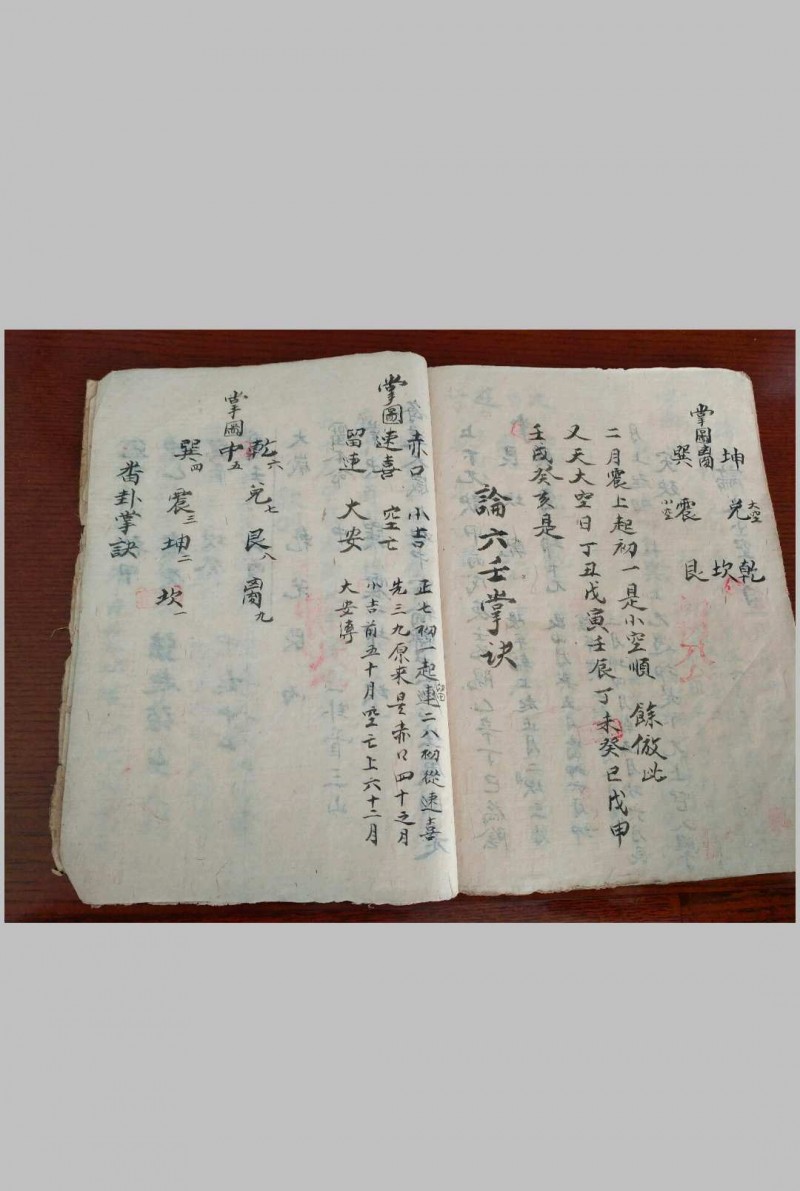 掌圖
坤 兌大空 乾
離 坎
巽 震小空 艮
二月震上起初一是小空順 餘倣此
又天大空日丁丑戊寅壬辰丁未癸巳戊申
壬戌癸亥是
論六壬掌訣
掌圖
赤口 小吉
速喜 空亡
留連 大安
正七初一起留連二八初從速喜
先三九原來是赤口四十之月
小吉前五十月空亡上六十二月
大安溥
掌圖
乾六 兌七 艮八 離九
中五
巽四 震三 坤二 坎一
畨卦掌訣